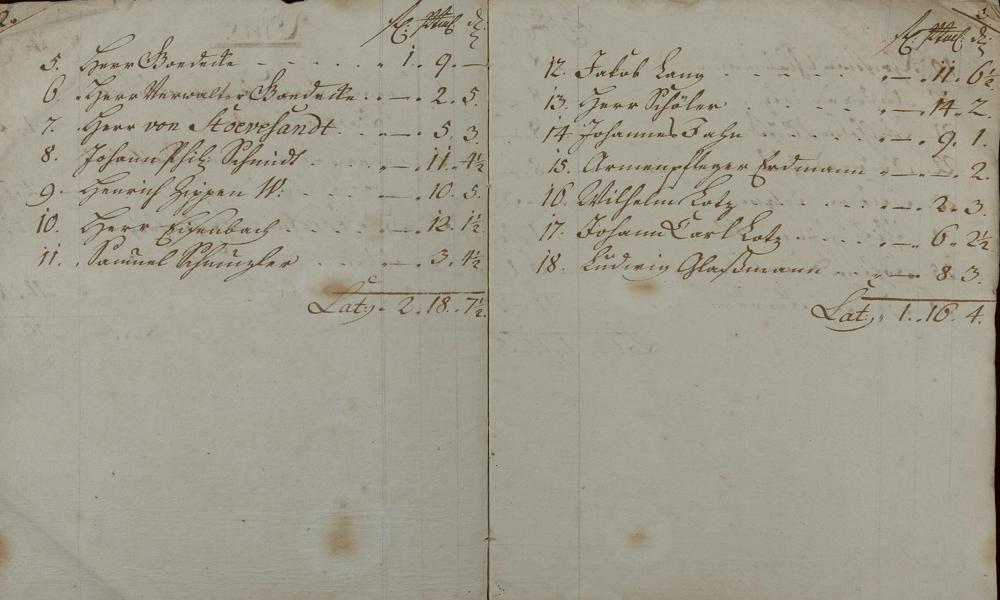 2.
fl. Stüb. d.
5. Herr Goedecke - - - - - 1. 9. —
6. Herr Verwalter Goedecke . . — . 2. 5.
7. Herr von Stoevesandt . . — . 5. 3.
8. Johann Phil: Schmidt . . . — . 11. 4½
9. Henrich Zippen W: . . . — . 10. 5.
10. Herr Eisenbach - - . . — . 12. 1½
11. Samuel Schmitzler . . . — . 3. 4½
Lat: 2. 18. 7½.
3.
fl. Stüb. d.
12. Jakob Lang - - - - - — . 11. 6½
13. Herr Schöler . . . . — . 14. 2.
14. Johannes Jahn . . . . — . 9. 1.
15. Armenpfleger Erdmann — . — . 2.
16. Wilhelm Lotz . . . . — . 2. 3.
17. Johann Carl Lotz . . . . — . 6. 2½
18. Ludwig Glaßmann . . — . 8. 3.
Lat: 1. 16. 4.